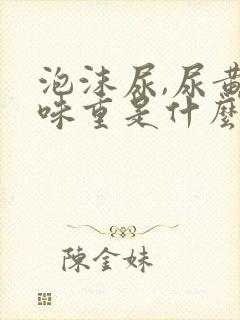 泡沫尿,尿黄
味重是什麼
陳金妹